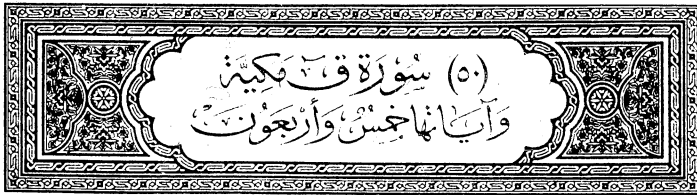 (٥٠) سُورَة قٓ مَكِيَّة
وَآيَاتهَا خَمْسٌ وَأَرْبَعُونَ